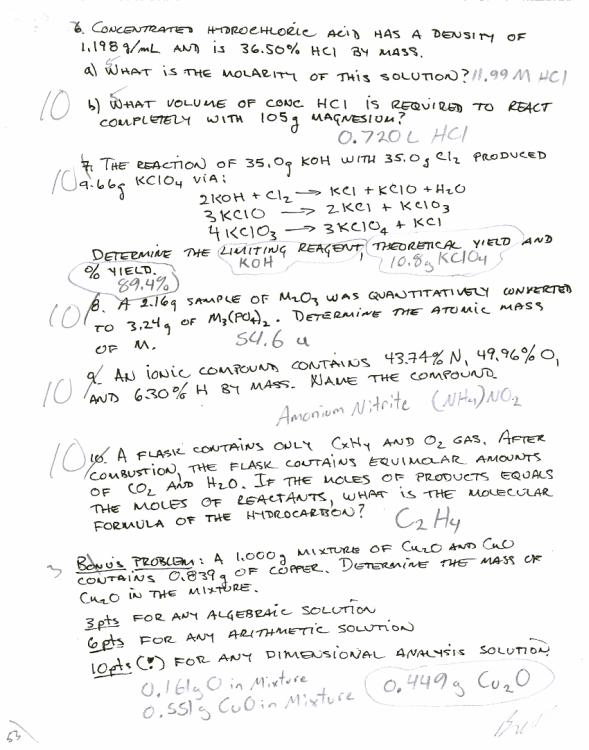 6. CONCENTRATED HYDROCHLORIC ACID HAS A DENSITY OF
1.198 g/mL AND IS 36.50% HCl BY MASS.
a) WHAT IS THE MOLARITY OF THIS SOLUTION? 11.99 M HCl
10 b) WHAT VOLUME OF CONC HCl IS REQUIRED TO REACT
COMPLETELY WITH 105g MAGNESIUM?
0.720 L HCl
10 7. THE REACTION OF 35.0g KOH WITH 35.0g Cl2 PRODUCED
9.66g KClO4 VIA:
2KOH + Cl2 → KCl + KClO + H2O
3KClO → 2KCl + KClO3
4KClO3 → 3KClO4 + KCl
DETERMINE THE LIMITING REAGENT, THEORETICAL YIELD AND
KOH 10.8g KClO4
% YIELD.
89.4%
10 8. A 2.16g SAMPLE OF M2O3 WAS QUANTITATIVELY CONVERTED
TO 3.24g OF M3(PO4)2. DETERMINE THE ATOMIC MASS
OF M. 54.6 u
10 9. AN IONIC COMPOUND CONTAINS 43.74% N, 49.96% O,
AND 6.30% H BY MASS. NAME THE COMPOUND
Amonium Nitrite (NH4)NO2
10 10. A FLASK CONTAINS ONLY CxHy AND O2 GAS. AFTER
COMBUSTION, THE FLASK CONTAINS EQUIMOLAR AMOUNTS
OF CO2 AND H2O. IF THE MOLES OF PRODUCTS EQUALS
THE MOLES OF REACTANTS, WHAT IS THE MOLECULAR
FORMULA OF THE HYDROCARBON? C2H4
3 BONUS PROBLEM: A 1.000g MIXTURE OF Cu2O AND CuO
CONTAINS 0.839g OF COPPER. DETERMINE THE MASS OF
Cu2O IN THE MIXTURE.
3pts FOR ANY ALGEBRAIC SOLUTION
6pts FOR ANY ARITHMETIC SOLUTION
10pts (!) FOR ANY DIMENSIONAL ANALYSIS SOLUTION
0.161g O in Mixture
0.449g Cu2O
0.551g CuO in Mixture
53